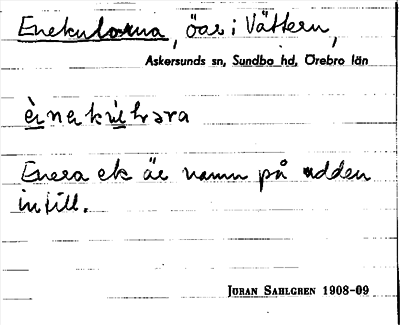 Enekullorna, öar i Vättern,
Askersunds sn, Sundbo hd, Örebro län
Enera ek är namn på udden
intill.
JÖRAN SAHLGREN 1908-09